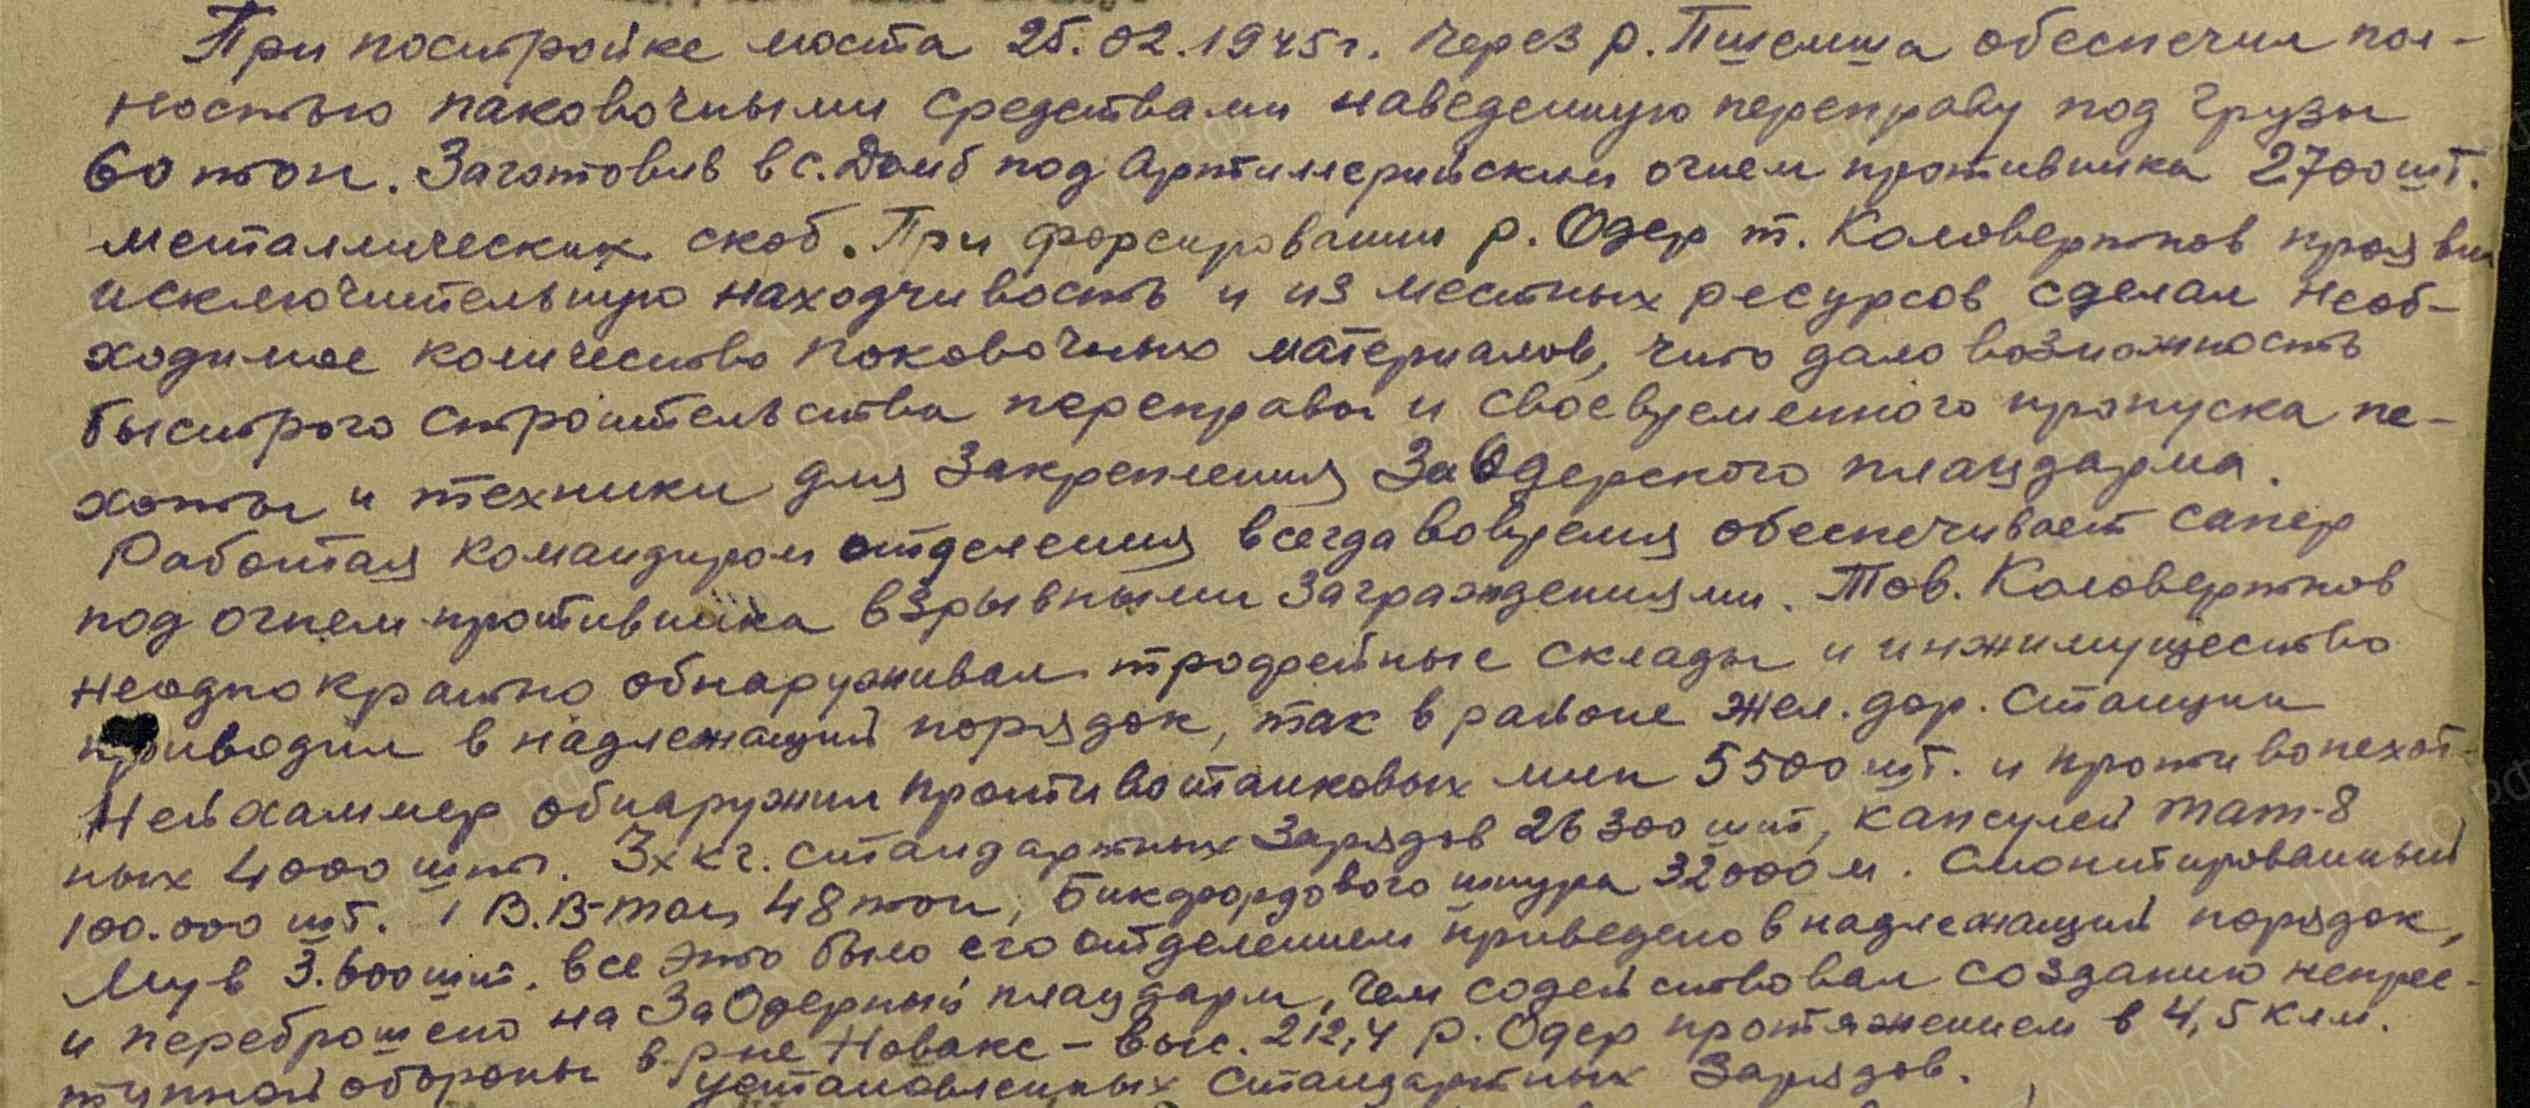 При постройке моста 25.02.1945г. через р. Пшемша обеспечил пол-
ностью паковочными средствами наведенную переправу под грузы
60 тон. Заготовив в с. Домб под Артиллерийским огнем противника 2700 шт.
металлических скоб. При форсировании р. Одер т. Коловертнов прояв
исключительную находчивость и из местных ресурсов сделал необ-
ходимое количество поковочных материалов, что дало возможность
быстрого строительства переправы и своевременного пропуска пе-
хоты и техники для закрепления ЗаОдерского плацдарма.
Работая командиром отделения всегда вовремя обеспечивает сапер
под огнем противника взрывными заграждениями. Тов. Коловертнов
неоднократно обнаруживал трофейные склады и инжимущество
приводил в надлежащий порядок, так в районе жел. дор. станции
Нейхаммер обнаружил противотанковых мин 5500 шт. и противопехот-
ных 4000 шт. 3х кг. стандартных зарядов 26300 шт, капсулей тат-8
100.000 шт. В.В-тол 48 тон, Бикфордового шнура 32000 м. Смонтированный
Мув 3.600 шт. все это было его отделением приведено в надлежащий порядок,
и переброшено на ЗаОдерный плацдарм, чем содействовал созданию непрес-
тупной обороны в р-не Новакс - выс. 212,4 р. Одер протяжением в 4,5 клм.
установленных стандартных зарядов.